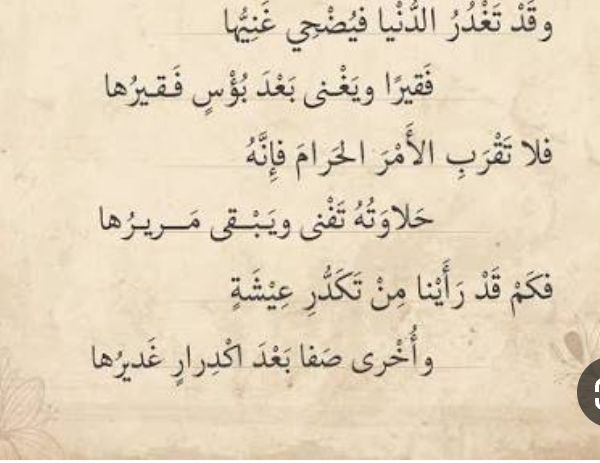 وقَدْ تَغْدُرُ الدُّنْيا فيُضْحِي غَنِيُّها
فَقيرًا ويَغْنى بَعْدَ بُؤْسٍ فَقيرُها
فلا تَقْرَبِ الأَمْرَ الحَرامَ فإِنَّهُ
حَلاوَتُهُ تَفْنى ويَبْقى مَريرُها
فكَمْ قَدْ رَأَيْنا مِنْ تَكَدُّرِ عِيْشَةٍ
وأُخْرى صَفا بَعْدَ اكْدِرارٍ غَديرُها